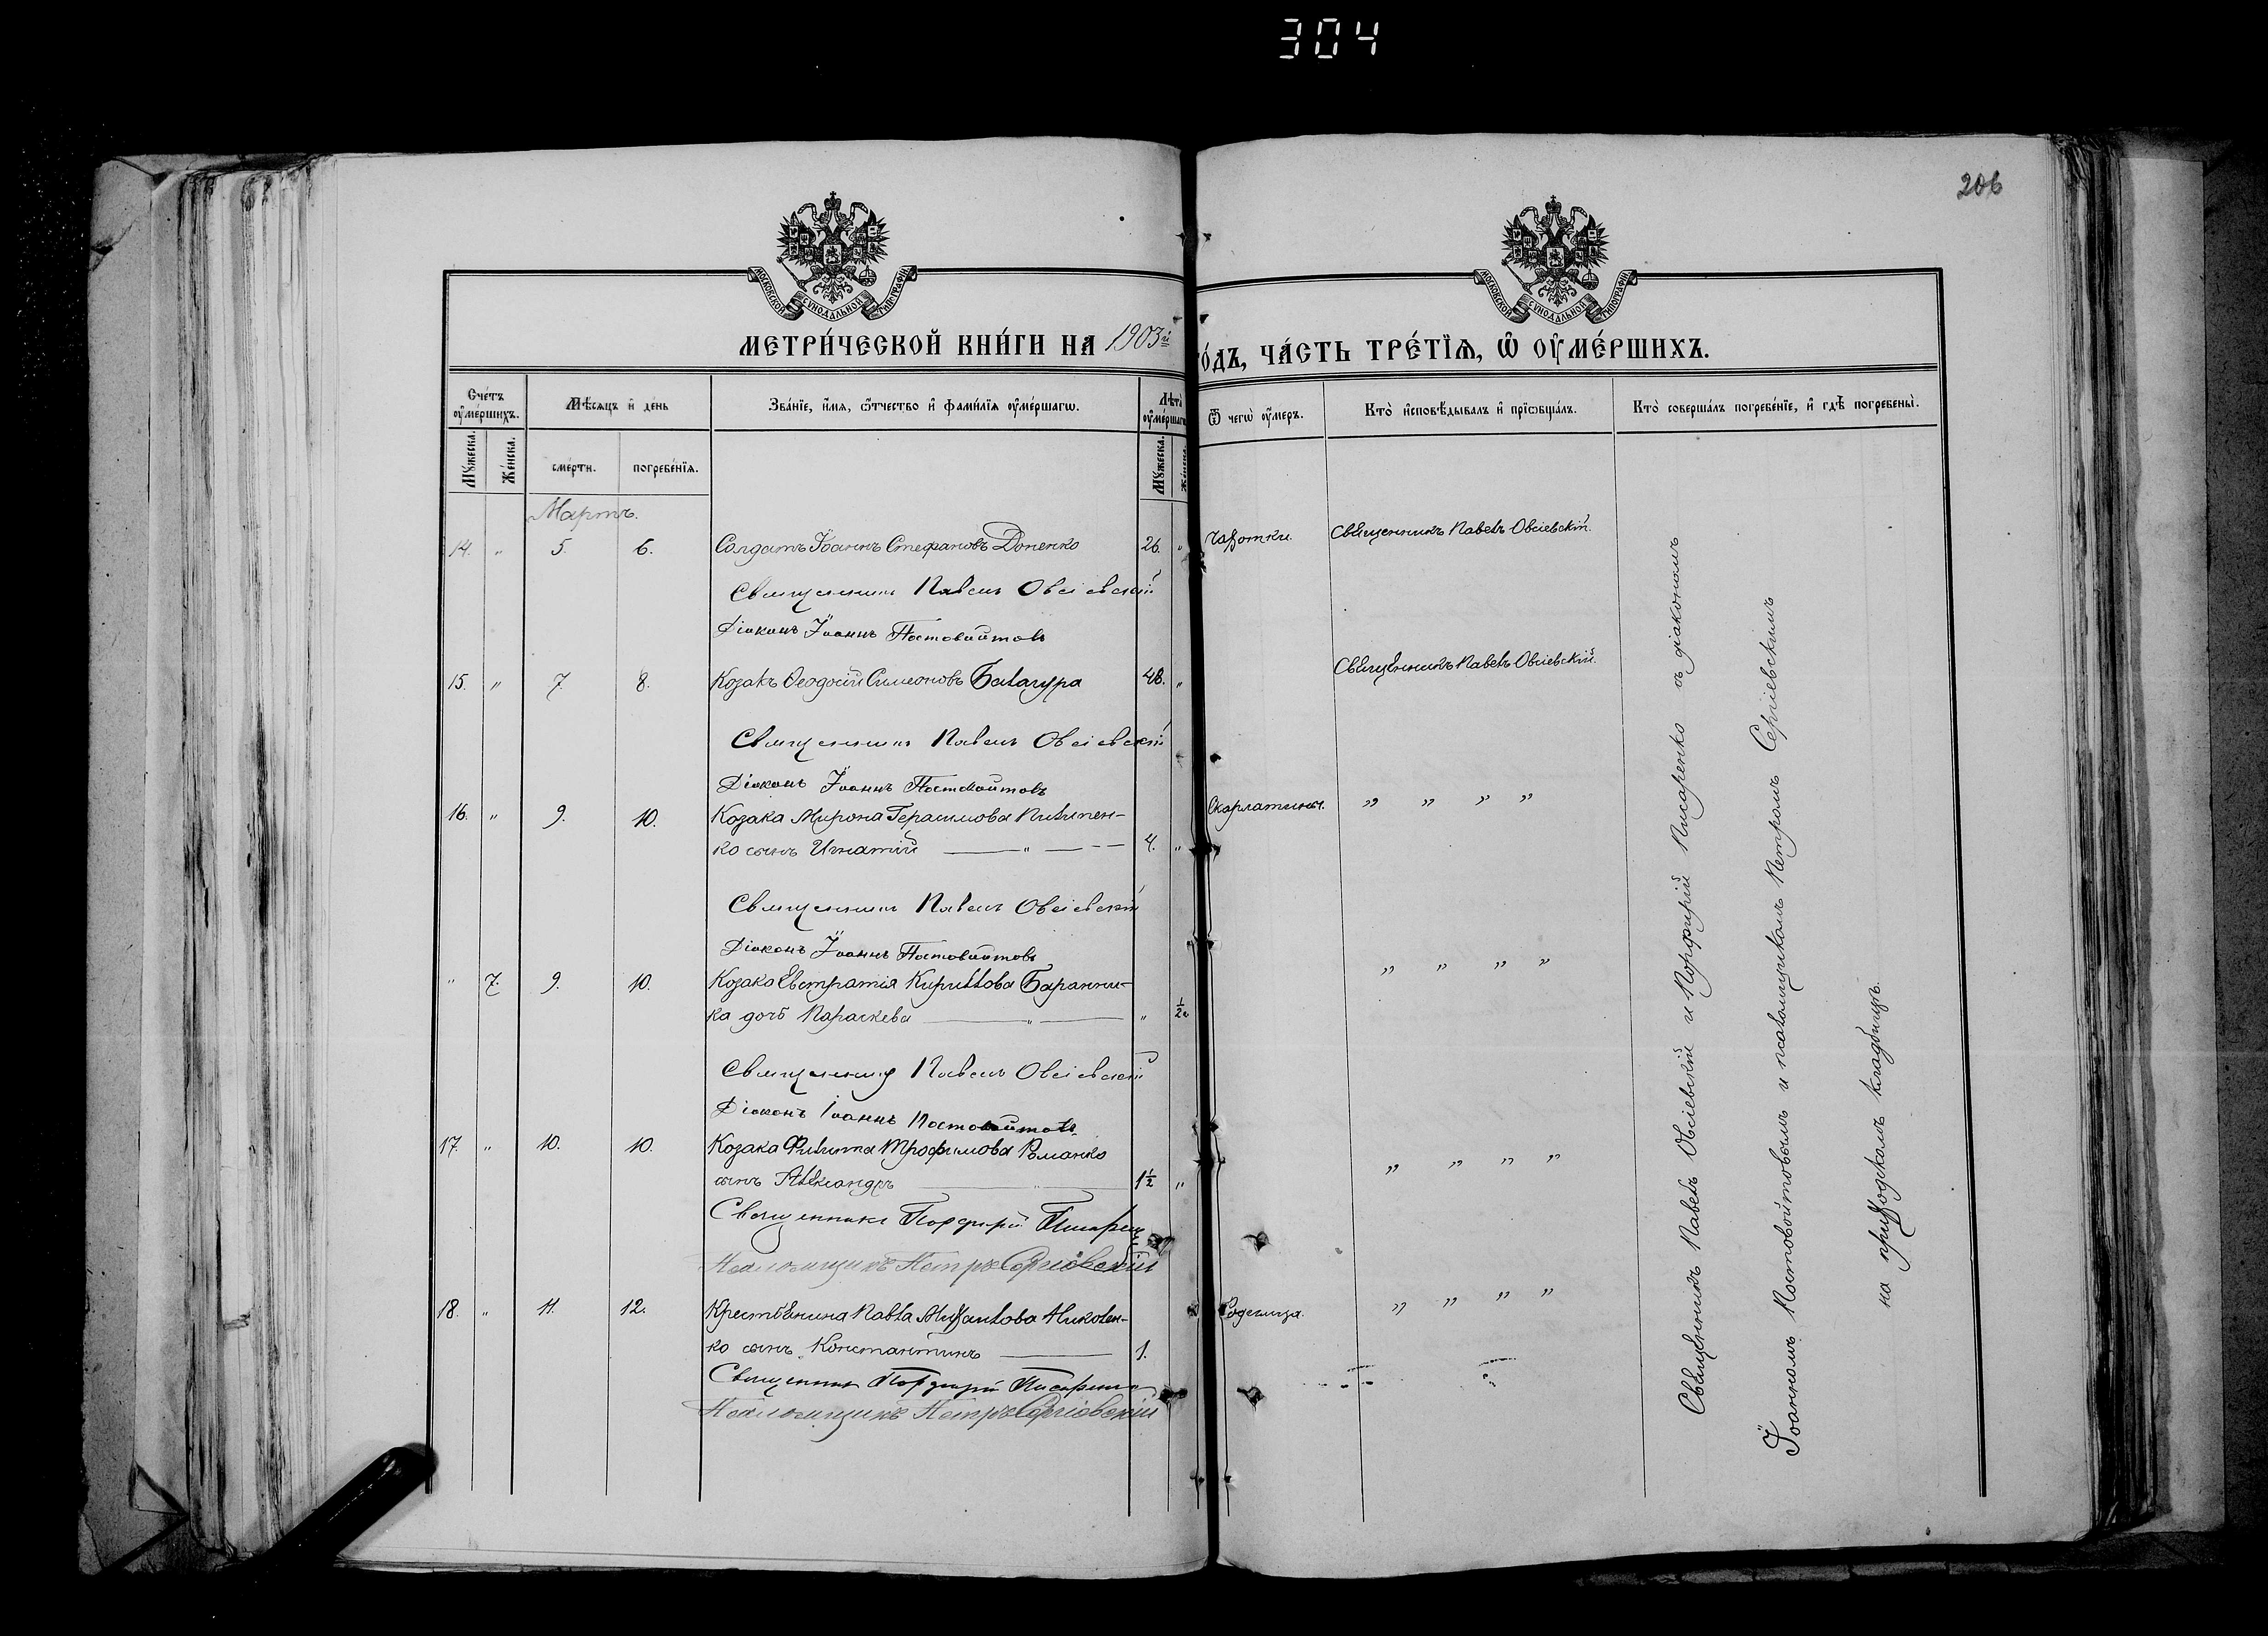 304
206
МОСКОВСКОЙ СѴНОДАЛЬНОЙ ТИПОГРАФІИ
МОСКОВСКОЙ СѴНОДАЛЬНОЙ ТИПОГРАФІИ
МЕТРИ́ЧЕСКОЙ КНИ́ГИ НА 1903й
ГО́ДЪ, ЧА́СТЬ ТРЕ́ТЇѦ, Ѽ ОУ҆МЕ́РШИХЪ.
Сче́тъ оу҆ме́ршихъ.
Мѣ́сяцъ и҆ де́нь
Зва́нїе, и҆́мя, ѻ҆́тчество и҆ фами́лїя оу҆ме́ршагѡ.
Лѣ́та оу҆ме́ршагѡ
Ѿ чегѡ̀ оу҆́меръ.
Кто̀ и҆сповѣ́дывалъ и҆ прїѡбща́лъ.
Кто̀ соверша́лъ погребе́нїе, и҆ гдѣ̀ погребены̀.
Мꙋ́жеска. Же́нска.
сме́рти. погребе́нїя.
Мꙋ́жеска. Же́нска.
Мартъ.
14. " 5. 6. Солдатъ Іоаннъ Стефановъ Доненко 26. " Чахотки. Священникъ Павелъ Овсіевскій.
Священникъ Павелъ Овсіевскій
Діаконъ Іоаннъ Постовойтовъ
15. " 7. 8. Козакъ Ѳеодосій Симеоновъ Балагура 48. " Священникъ Павелъ Овсіевскій.
Священникъ Павелъ Овсіевскій
Діаконъ Іоаннъ Постовойтовъ
16. " 9. 10. Козака Мирона Герасимова Пилипен-
ко сынъ Игнатій " 4. " Скарлатины. " " " "
Священникъ Павелъ Овсіевскій
Діаконъ Іоаннъ Постовойтовъ
" 7. 9. 10. Козака Евстратія Кириллова Баранни-
ка дочь Параскева " " 1/2 " " " "
Священникъ Павелъ Овсіевскій
Діаконъ Іоаннъ Постовойтовъ
17. " 10. 10. Козака Филиппа Трофимова Романко
сынъ Александръ " 1 1/2 " " " " "
Священникъ Порфирій Писаренко
Псаломщикъ Петръ Сергіевскій
18. " 11. 12. Крестьянина Павла Михайлова Николен-
ко сынъ Константинъ 1. Родимца. " " " "
Священникъ Порфирій Писаренко
Псаломщикъ Петръ Сергіевскій
Священникъ Павелъ Овсіевскій и Порфирій Писаренко съ діакономъ
Іоанномъ Постовойтовымъ и псаломщикомъ Петромъ Сергіевскимъ
на приходскомъ кладбищѣ.